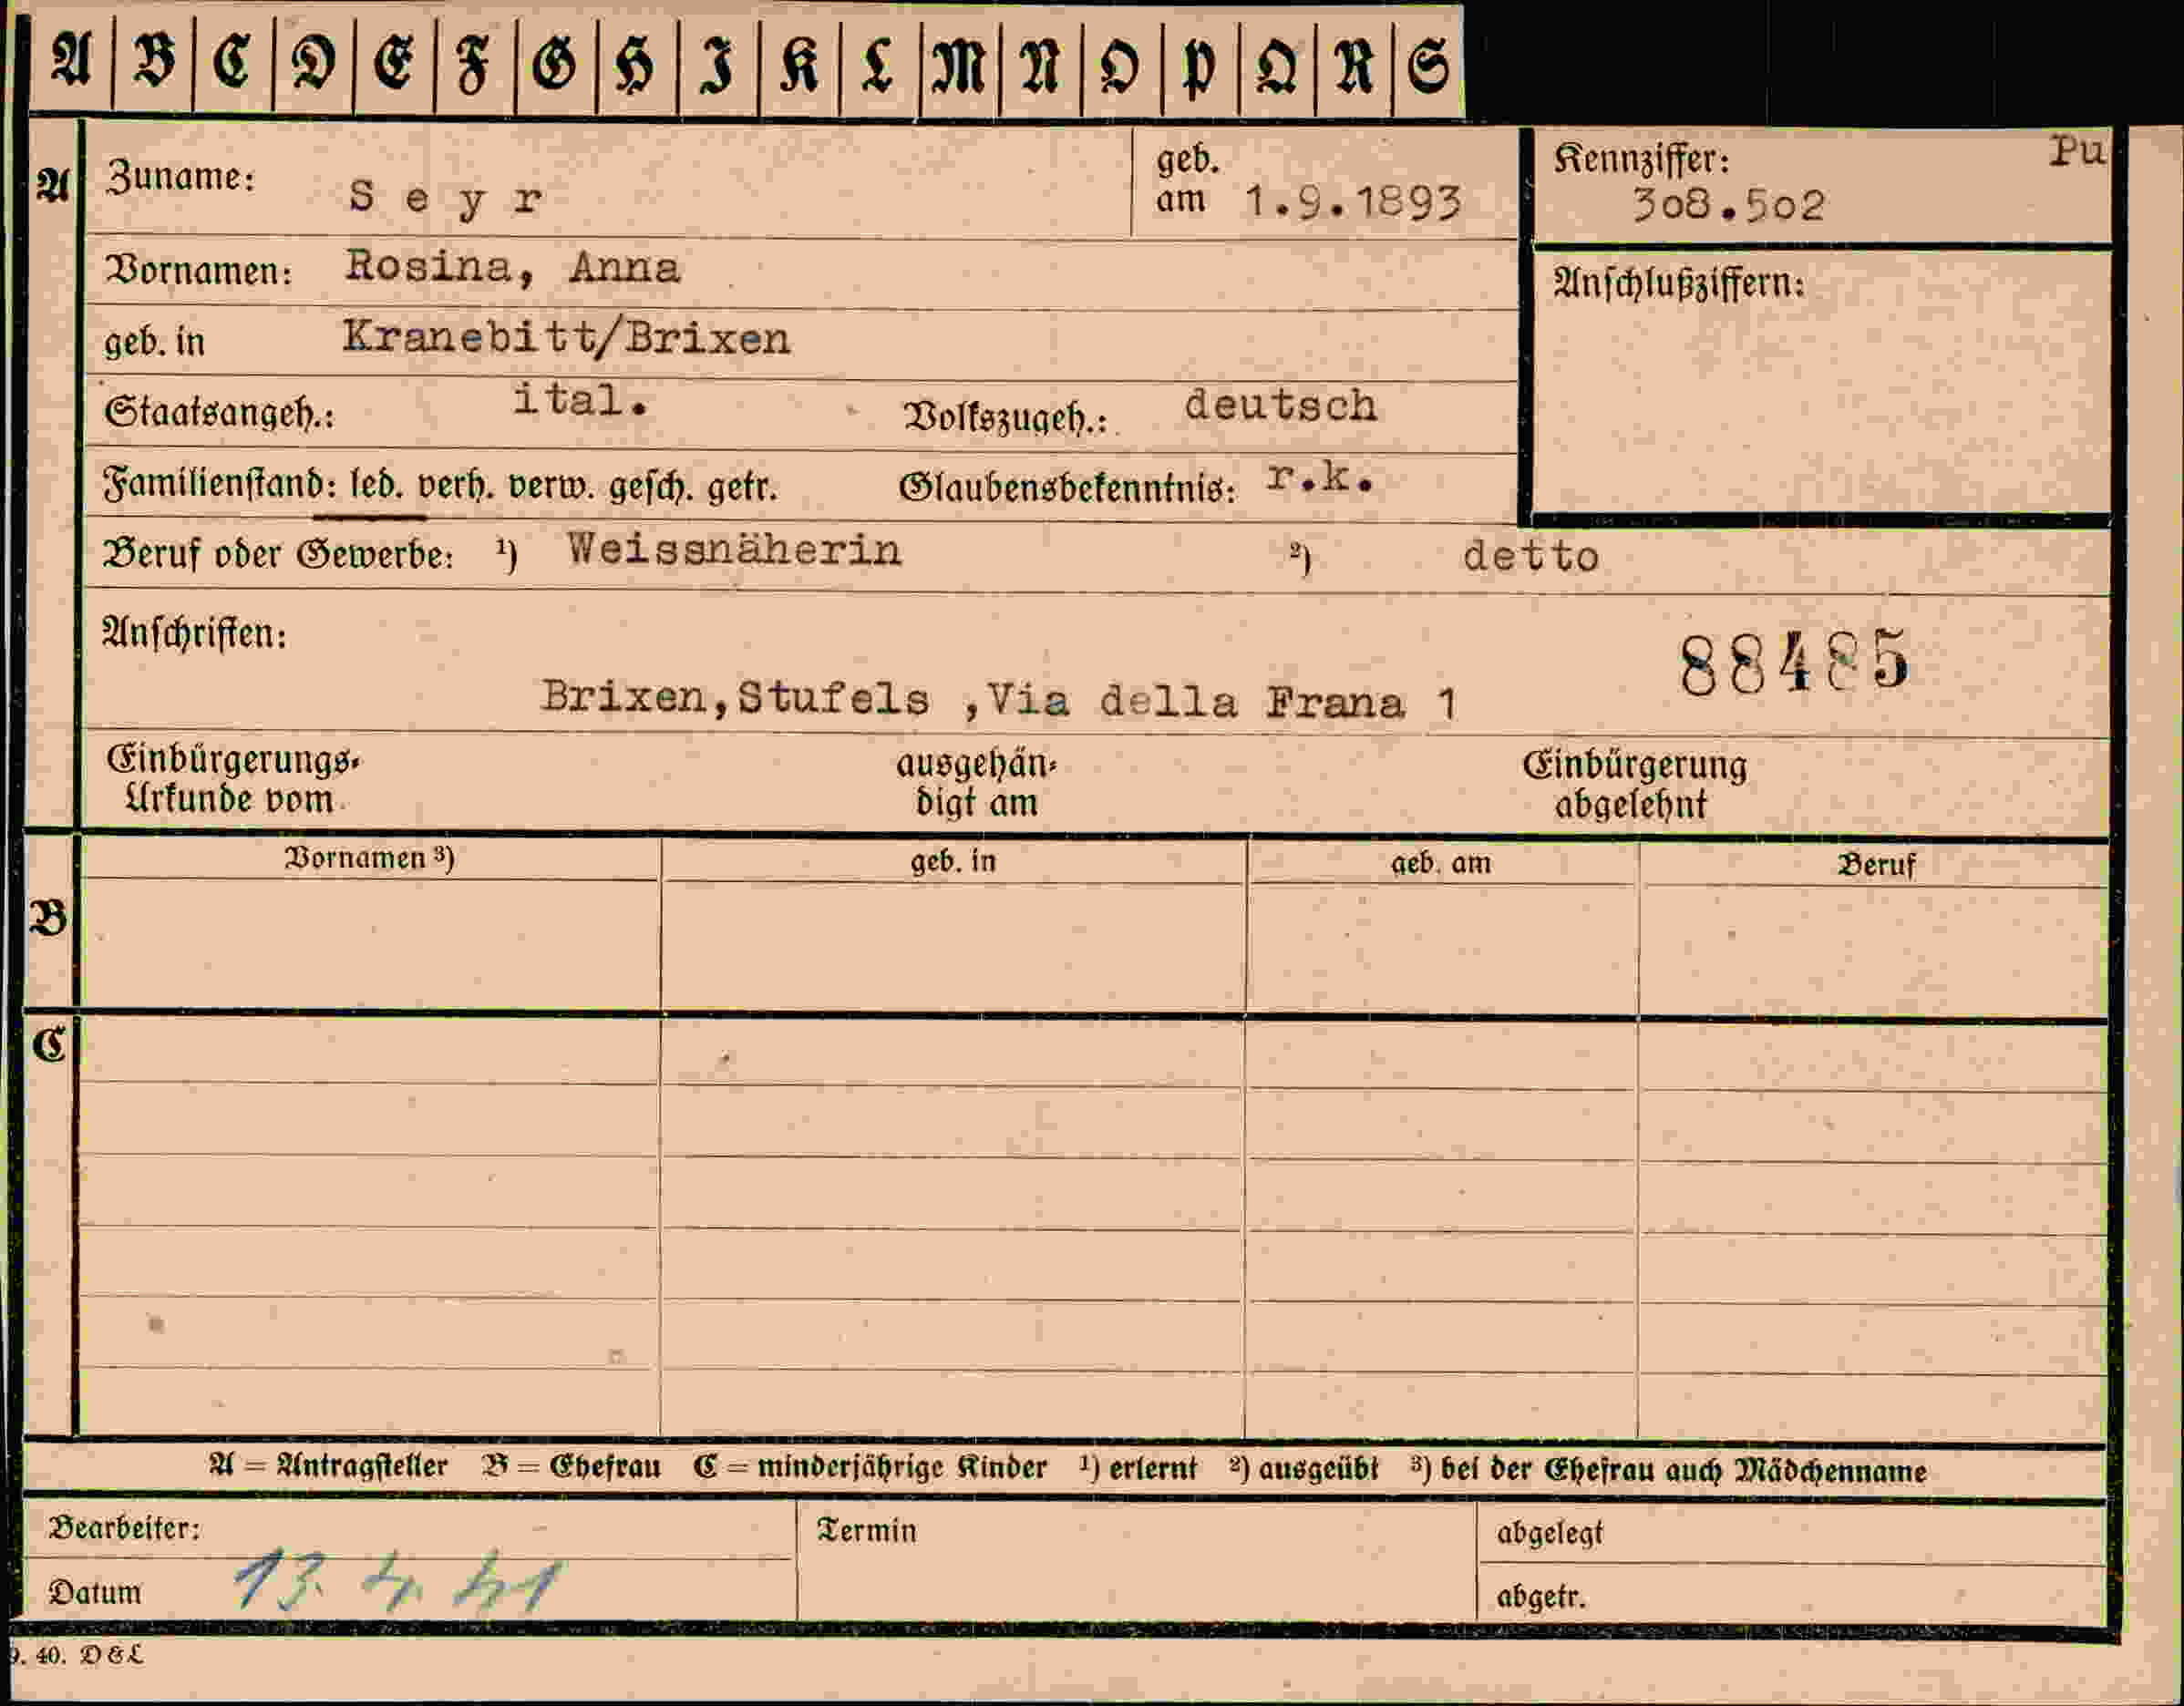 A B C D E F G H I K L M N O P Q R S
A Zuname: Seyr geb. am 1.9.1893 Kennziffer: 308.502 Pu
Vornamen: Rosina, Anna Anschlußziffern:
geb. in Kranebitt/Brixen
Staatsangeh.: ital. Volkszugeh.: deutsch
Familienstand: led. verh. verw. gesch. getr. Glaubensbekenntnis: r.k.
Beruf oder Gewerbe: ¹) Weissnäherin ²) detto
Anschriften: 88485
Brixen,Stufels ,Via della Frana 1
Einbürgerungs- ausgehän- Einbürgerung
Urkunde vom digt am abgelehnt
Vornamen ³) geb. in geb. am Beruf
B
C
A = Antragsteller B = Ehefrau C = minderjährige Kinder ¹) erlernt ²) ausgeübt ³) bei der Ehefrau auch Mädchenname
Bearbeiter: Termin abgelegt
Datum 13. 4. 41 abgetr.
9. 40. D & L